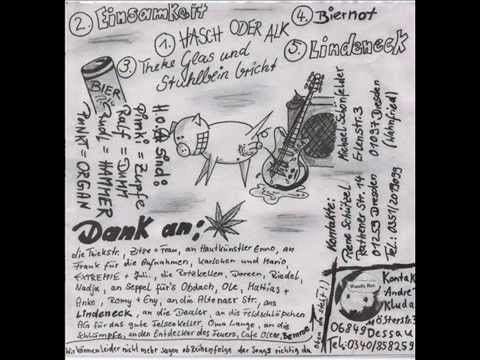 2. Einsamkeit
1. HASCH ODER ALK
3. Theke Glas und
Stuhlbein bricht
4. Biernot
5. Lindeneck
BIER
H.o.A. sind:
Pinki = Zappe
Ralf = DUMM
Rudl = HAMMER
PUNKT = ORGAN
Kontakte:
René Schützel
Rathener Str. 14
01259 Dresden
Tel.: 0351/2019099
Michael Schönfelder
Erlenstr. 3
01097 Dresden
(Wahnfried)
Dank an:
die Trickstr., Zitze + Frau, an Hautkünstler Enno, an
Frank für die Aufnahmen, Karlchen und Mario,
EXTREME + Juli, die Rotkellen, Doreen, Riedel,
Nadja, an Seppel für's Obdach, Ole, Mathias +
Anke, Romy + Eny, an die Altonaer Str., ans
Lindeneck, an die Dealer, an die Feldschlößchen
AG für das gute Felsenkeller, Oma Lange, an die
Schlümpfe, an den Entdecker des Feuers, Cafe Oscar,
Wir können leider nicht mehr sagen ob Reihenfolge der Songs richtig da
Kontak
André
Kluda
06849 Dessau
Tel.: 0340/858259